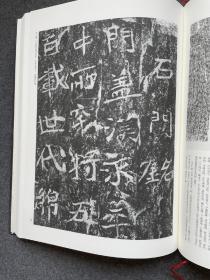 石門銘
門蓋漢永平
中所穿將五
百載世代綿